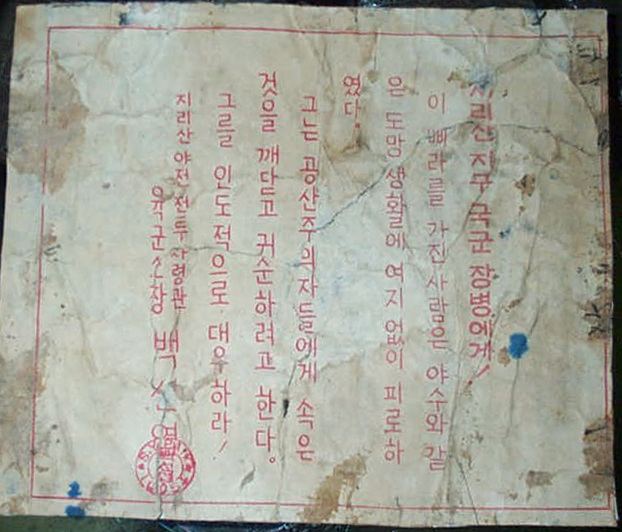 지리산 지구 국군 장병에게!
이 삐라를 가진 사람은 야수와 같
은 도망생활에 여지 없이 피로하
였다.
그는 공산주의자들에게 속은
것을 깨닫고 귀순하려고 한다.
그를 인도적으로 대우하라!
지리산 야전 전투 사령관
육군소장 백선엽